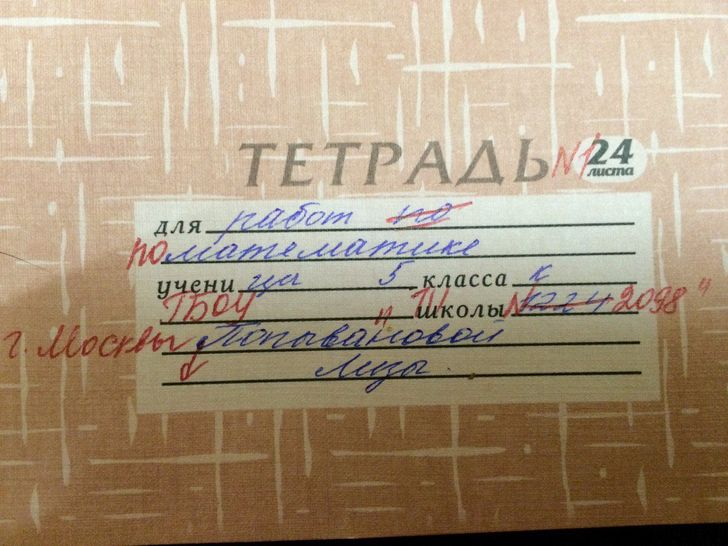 ТЕТРАДЬ №1 24 листа
для работ по
по математике
учени ца 5 класса к
ГБОУ " школы № 2098"
г. Москвы Попывановой
Лизы.